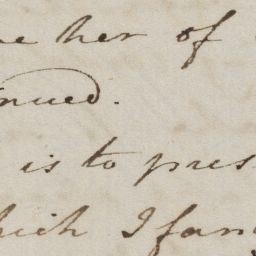 her of
nued.
is to pres
hich I fan